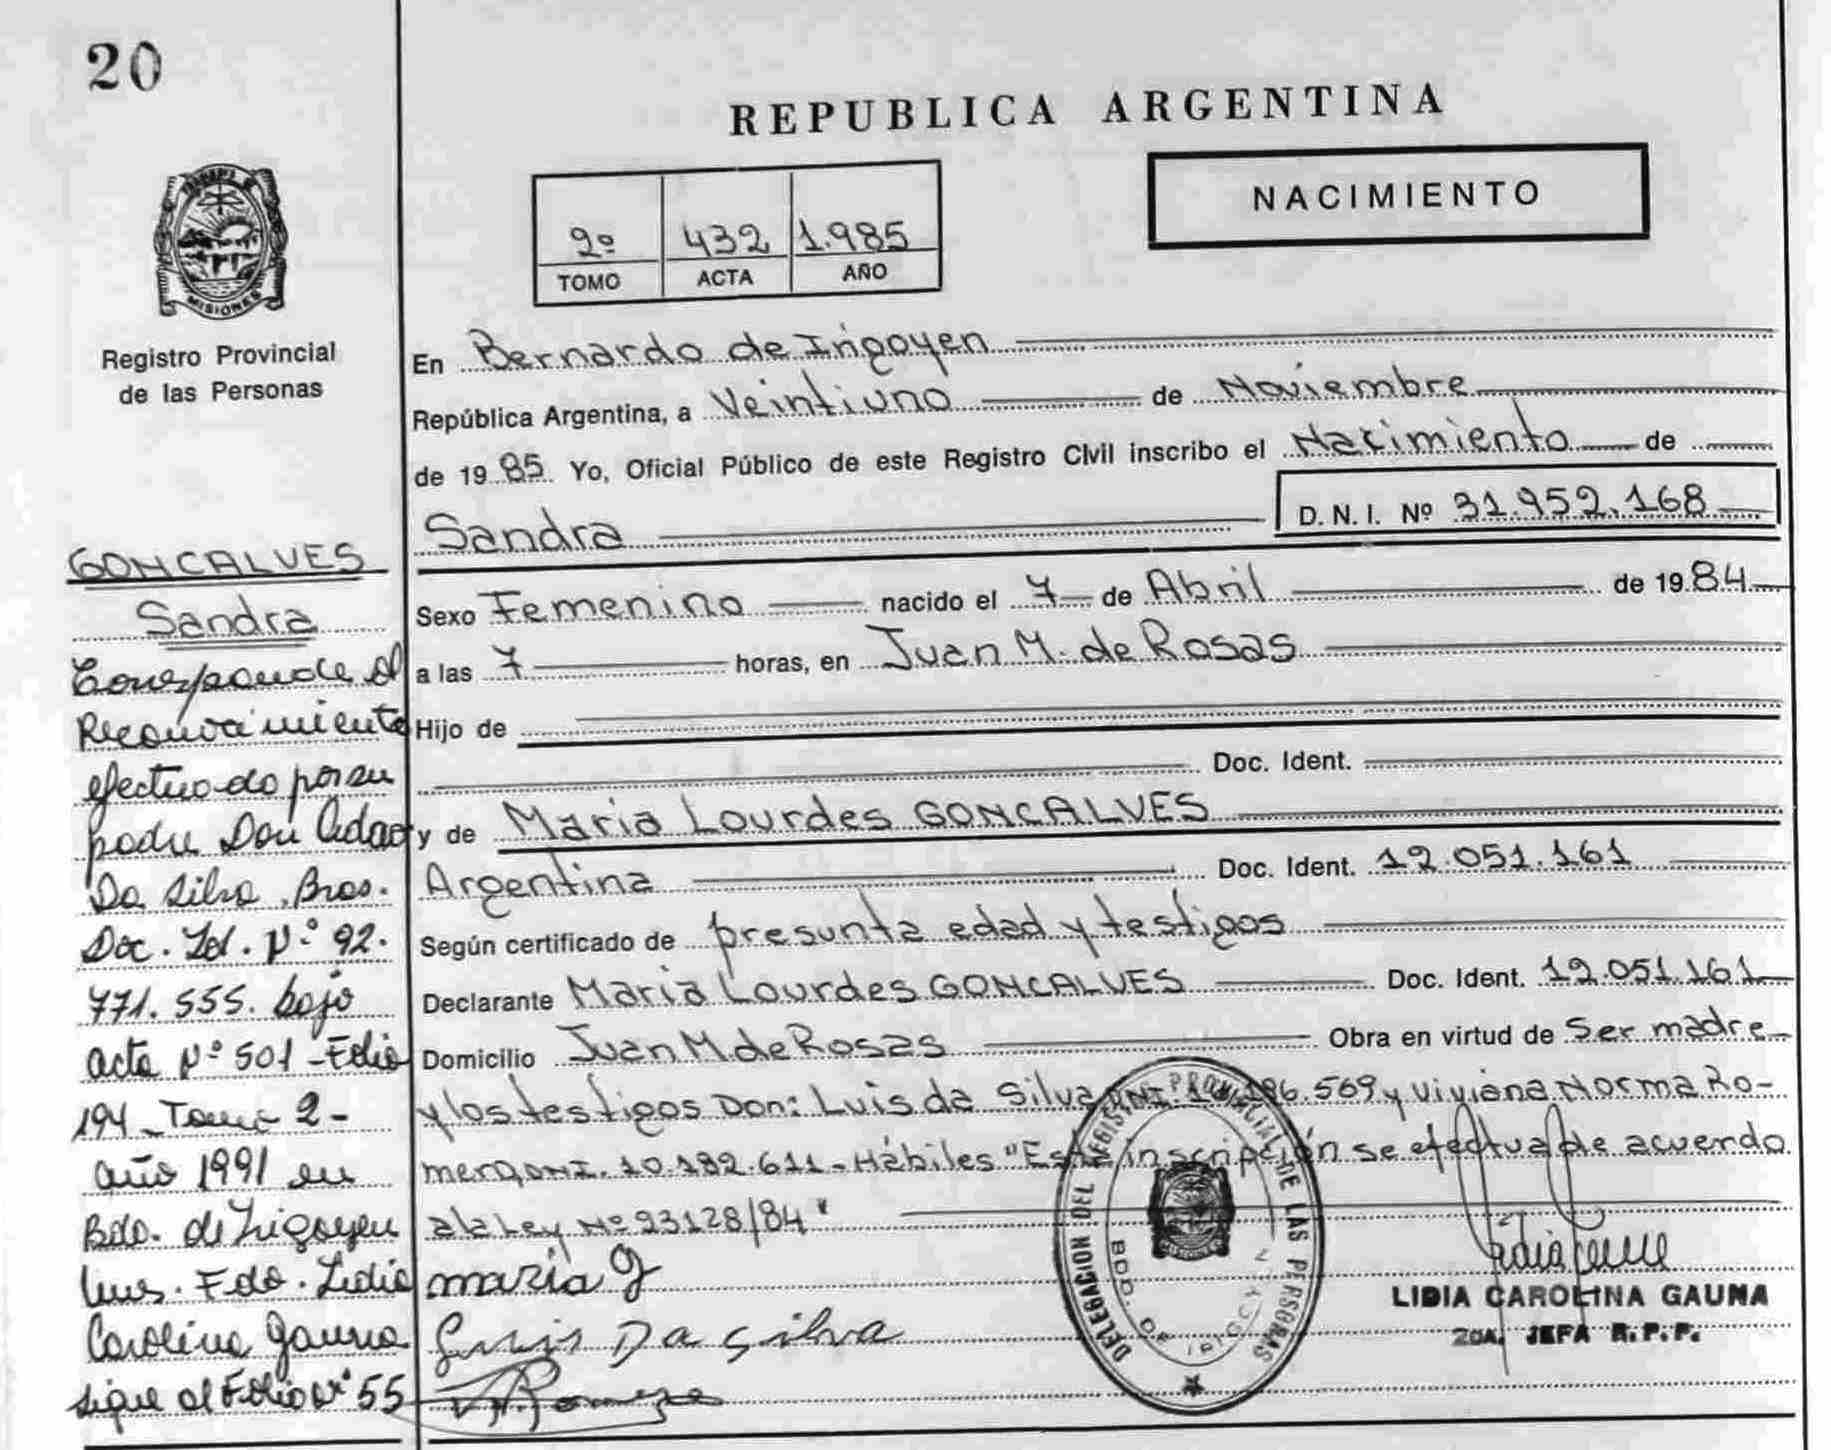 20
REPUBLICA ARGENTINA
NACIMIENTO
2º 432 1.985
TOMO ACTA AÑO
MISIONES
Registro Provincial
de las Personas
GONCALVES
Sandra
Corresponde al
Reconocimiento
efectuado por su
padre Don Adao
Da Silva, Bras.
Doc. Id. Nº 92.
771.555. bajo
acta Nº 501 - Folio
194 - Tomo 2 -
año 1991 en
Bdo. de Irigoyen
Mnes. Fdo. Lidia
Carolina Gauna
sigue al Folio Nº 55
En Bernardo de Irigoyen
República Argentina, a Veintiuno de Noviembre
de 1985 Yo, Oficial Público de este Registro Civil inscribo el Nacimiento de
Sandra D. N. I. Nº 31.952.168
Sexo Femenino nacido el 7 de Abril de 1984
a las 7 horas, en Juan M. de Rosas
Hijo de
Doc. Ident.
y de Maria Lourdes GONCALVES
Argentina Doc. Ident. 12.051.161
Según certificado de presunta edad y testigos
Declarante Maria Lourdes GONCALVES Doc. Ident. 12.051.161
Domicilio Juan M. de Rosas Obra en virtud de Ser madre
y los testigos Don: Luis da Silva DNI. 186.569 y Viviana Norma Ro-
mero DNI. 10.182.611 - Hábiles "Esta inscripción se efectua de acuerdo
a la Ley Nº 23128/84"
maria g
Luis Da Silva
DELEGACION DEL REGISTRO PROVINCIAL DE LAS PERSONAS
BDO. DE IRIGOYEN
LIDIA CAROLINA GAUNA
2DA. JEFA R.P.P.